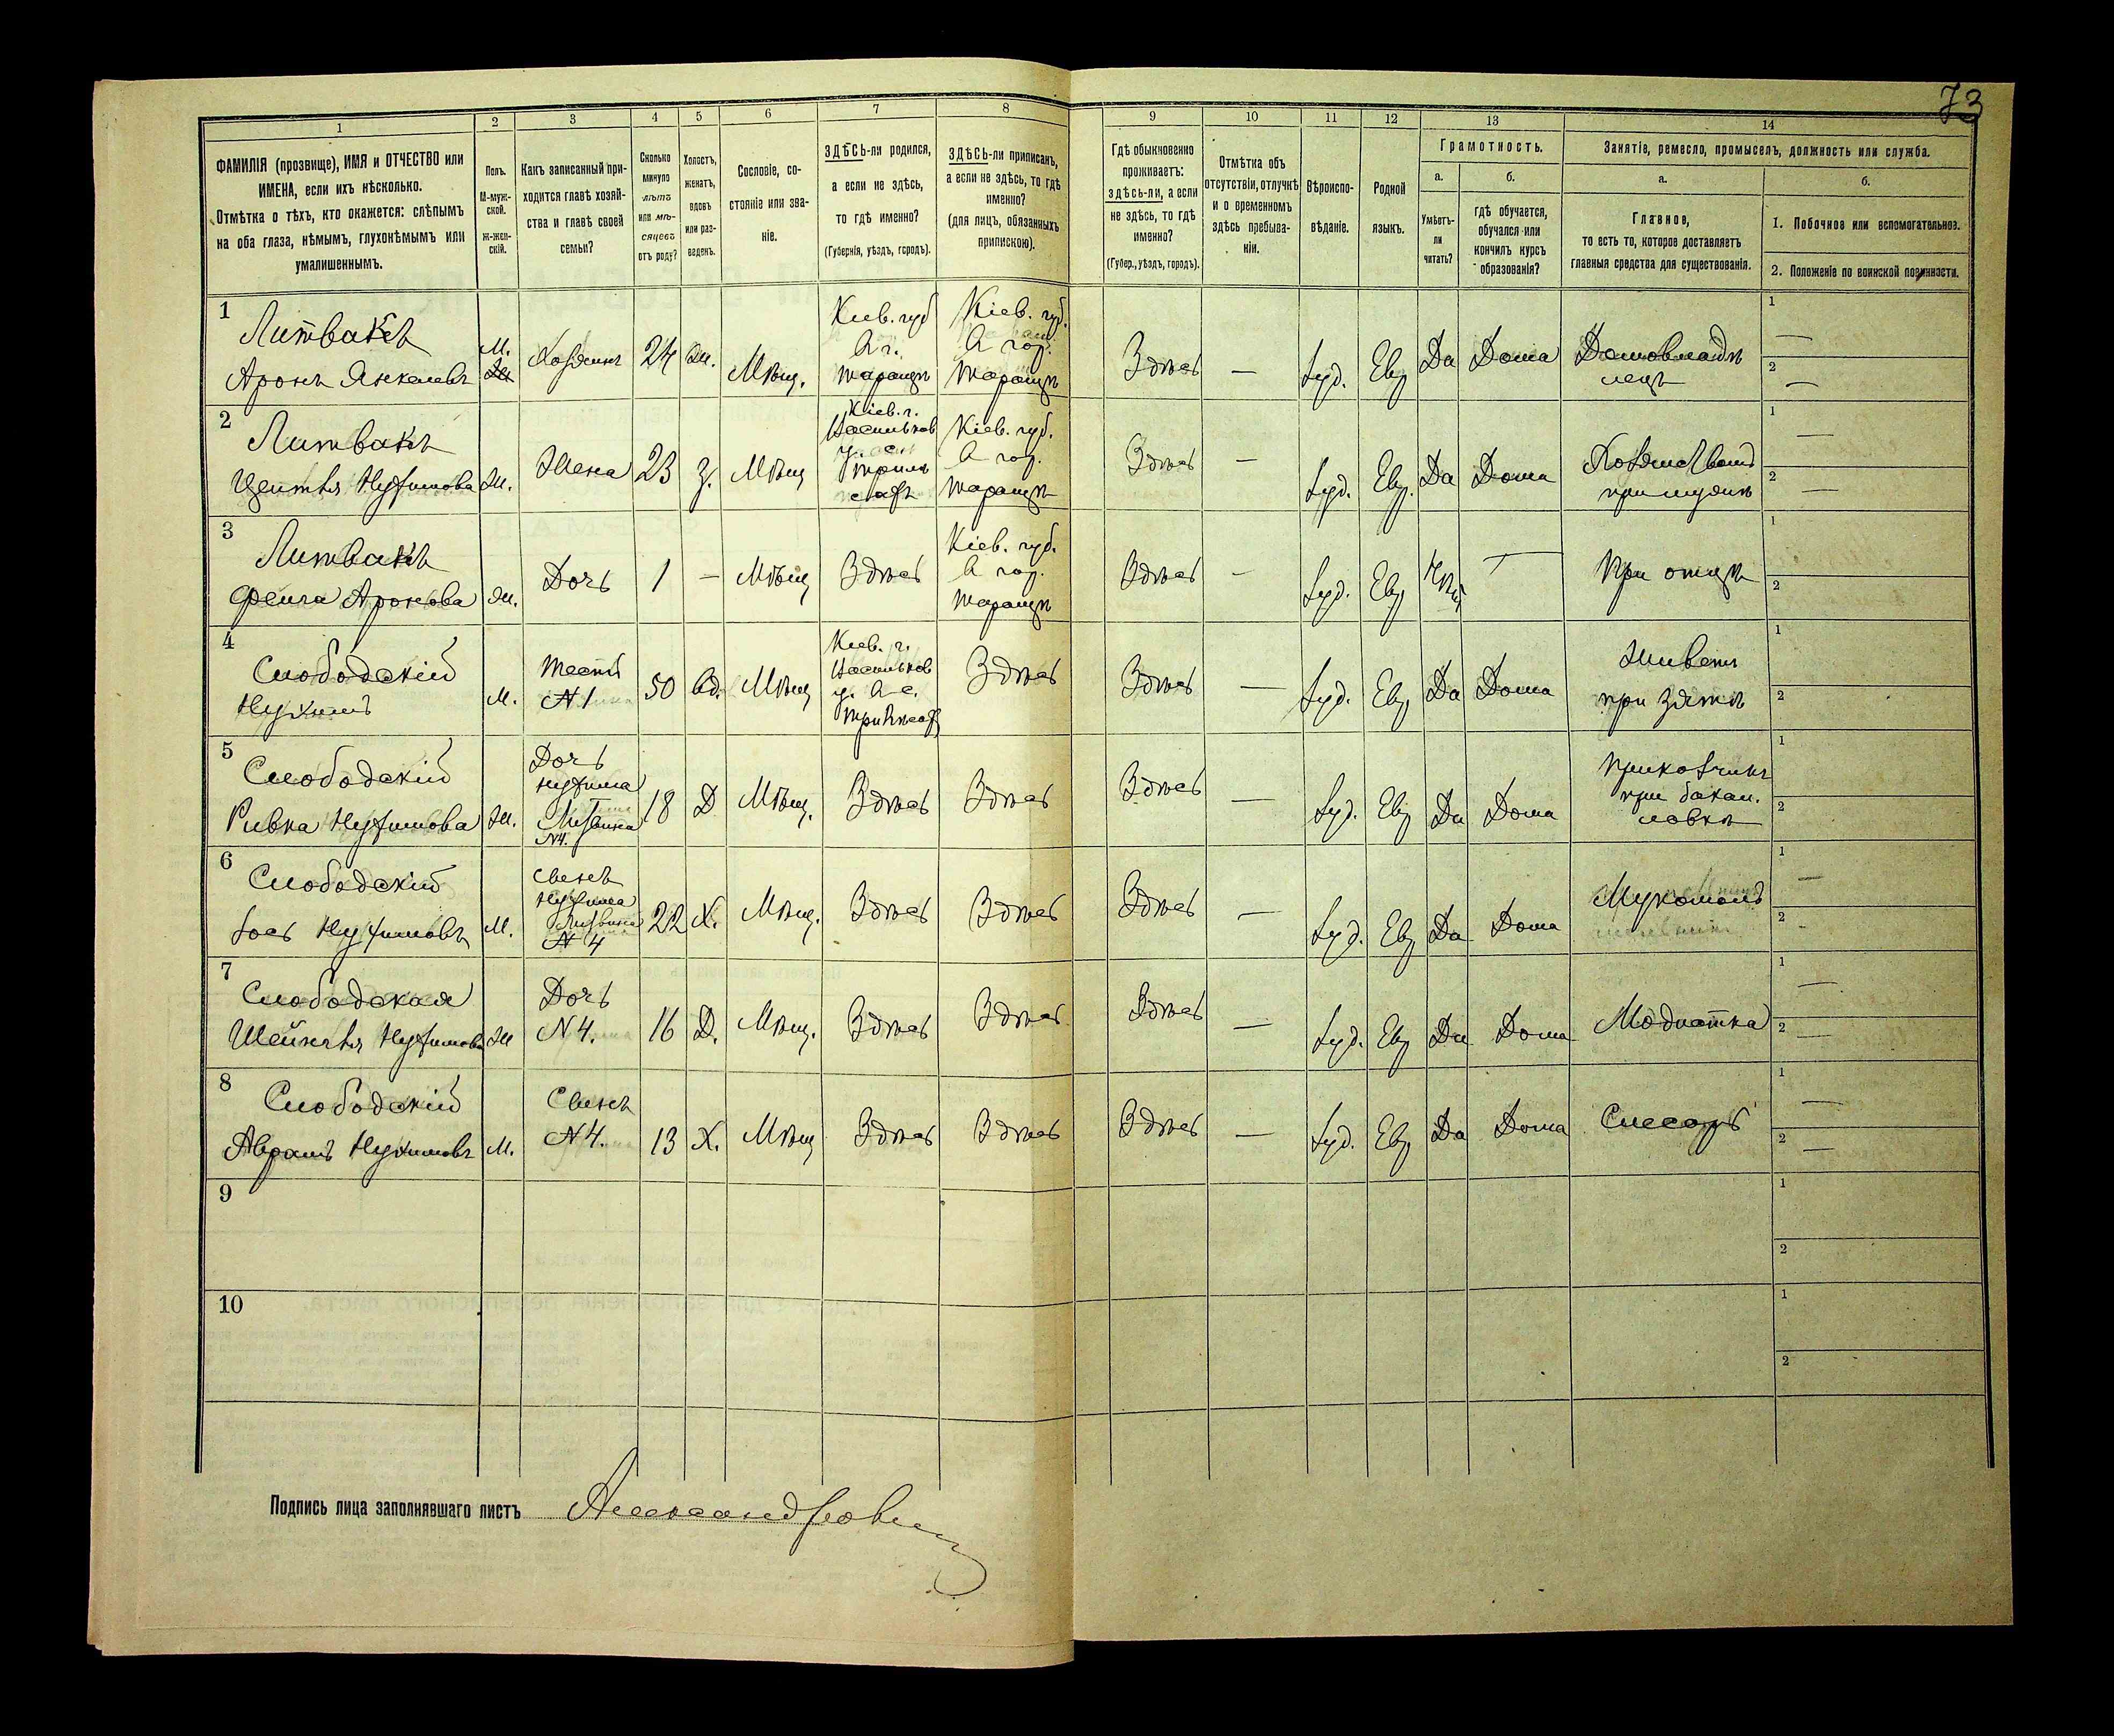 73
1
2
3
4
5
6
7
8
9
10
11
12
13
14
ФАМИЛІЯ (прозвище), ИМЯ и ОТЧЕСТВО или
ИМЕНА, если ихъ нѣсколько.
Отмѣтка о тѣхъ, кто окажется: слѣпымъ
на оба глаза, нѣмымъ, глухонѣмымъ или
умалишеннымъ.
Полъ.
М-муж-
ской.
Ж-жен-
скій.
Какъ записанный при-
ходится главѣ хозяй-
ства и главѣ своей
семьи?
Сколько
минуло
лѣтъ
или мѣ-
сяцевъ
отъ роду?
Холостъ,
женатъ,
вдовъ
или раз-
веденъ.
Сословіе, со-
стояніе или зва-
ніе.
ЗДѢСЬ-ли родился,
а если не здѣсь,
то гдѣ именно?
(Губернія, уѣздъ, городъ).
ЗДѢСЬ-ли приписанъ,
а если не здѣсь, то гдѣ
именно?
(для лицъ, обязанныхъ
припискою).
Гдѣ обыкновенно
проживаетъ:
здѣсь-ли, а если
не здѣсь, то гдѣ
именно?
(Губер., уѣздъ, городъ).
Отмѣтка объ
отсутствіи, отлучкѣ
и о временномъ
здѣсь пребыва-
ніи.
Вѣроиспо-
вѣданіе.
Родной
языкъ.
Грамотность.
а.
Умѣетъ-
ли
читать?
б.
гдѣ обучается,
обучался или
кончилъ курсъ
образованія?
Занятіе, ремесло, промыселъ, должность или служба.
а.
Главное,
то есть то, которое доставляетъ
главныя средства для существованія.
б.
1. Побочное или вспомогательное.
2. Положеніе по воинской повинности.
1
Литвакъ
Аронъ Янкелевъ
М.
Хозяинъ
24
Ж.
Мѣщ.
Кіев. губ
В г.
Таращѣ
Кіев. губ.
В гор.
Таращѣ
Здѣсь
—
Іуд.
Евр
Да
Дома
Домовладѣ
лецъ
1
—
2
—
2
Литвакъ
Цейтля Нухимова
Ж.
Жена
23
З.
Мѣщ
Кіев. г.
Васильков
Кіев. губ.
В гор.
Таращѣ
Здѣсь
—
Іуд.
Евр.
Да
Дома
при мужѣ
1
—
2
—
3
Литвакъ
Фейга Аронова
Ж.
Дочь
1
—
Мѣщ
Здѣсь
Кіев. губ.
В гор.
Таращѣ
Здѣсь
—
Іуд.
Евр
—
При отцѣ
1
2
4
Слободскій
Нухимъ
М.
Тесть
N 1
50
Вд.
Мѣщ
Кіев. г.
Васильков
у. В с.
Здѣсь
Здѣсь
—
Іуд.
Евр
Да
Дома
Живетъ
при зятѣ
1
2
5
Слободскій
Ривка Нухимова
Ж.
Дочь
Нухима
N4.
18
Д
Мѣщ.
Здѣсь
Здѣсь
Здѣсь
—
Іуд.
Евр
Да
Дома
при бакал.
лавкѣ
1
2
6
Слободскій
Іось Нухимовъ
М.
Сынъ
Нухима
N 4
22
Х.
Мѣщ.
Здѣсь
Здѣсь
Здѣсь
—
Іуд.
Евр
Да
Дома
Мукомолъ
1
—
2
-
7
Слободская
Шейндля Нухимова
Ж
Дочь
N 4.
16
Д.
Мѣщ.
Здѣсь
Здѣсь
Здѣсь
—
Іуд.
Евр
Да
Дома
Модистка
1
—
2
—
8
Слободскій
Аврамъ Нухимовъ
М.
Сынъ
N 4.
13
Х.
Мѣщ
Здѣсь
Здѣсь
Здѣсь
—
Іуд.
Евр
Да
Дома
Слесарь
1
—
2
—
9
1
2
10
1
2
Подпись лица заполнявшаго листъ